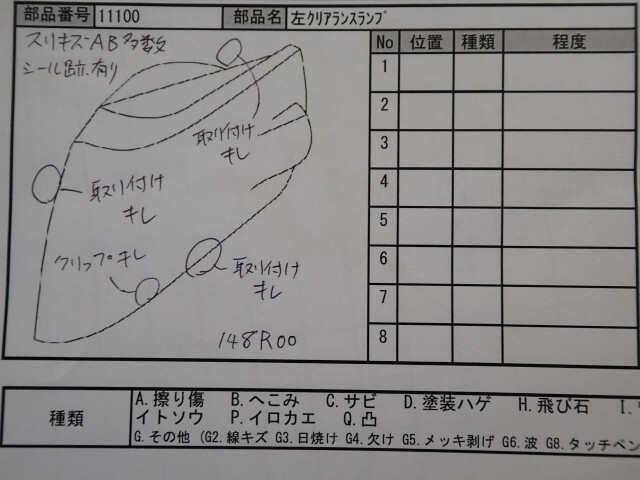 部品番号 11100 部品名 左ｸﾘｱﾗﾝｽﾗﾝﾌﾟ
スリキズ-AB多数
シール跡有り
No 位置 種類 程度
1
2
3
4
5
6
7
8
取り付け
キレ
取り付け
キレ
クリップキレ
取り付け
キレ
148R00
種類
A. 擦り傷 B. へこみ C. サビ D. 塗装ハゲ H. 飛び石 I.
イトソウ P. イロカエ Q. 凸
G. その他 (G2. 線キズ G3. 日焼け G4. 欠け G5. メッキ剥げ G6. 波 G8. タッチペン